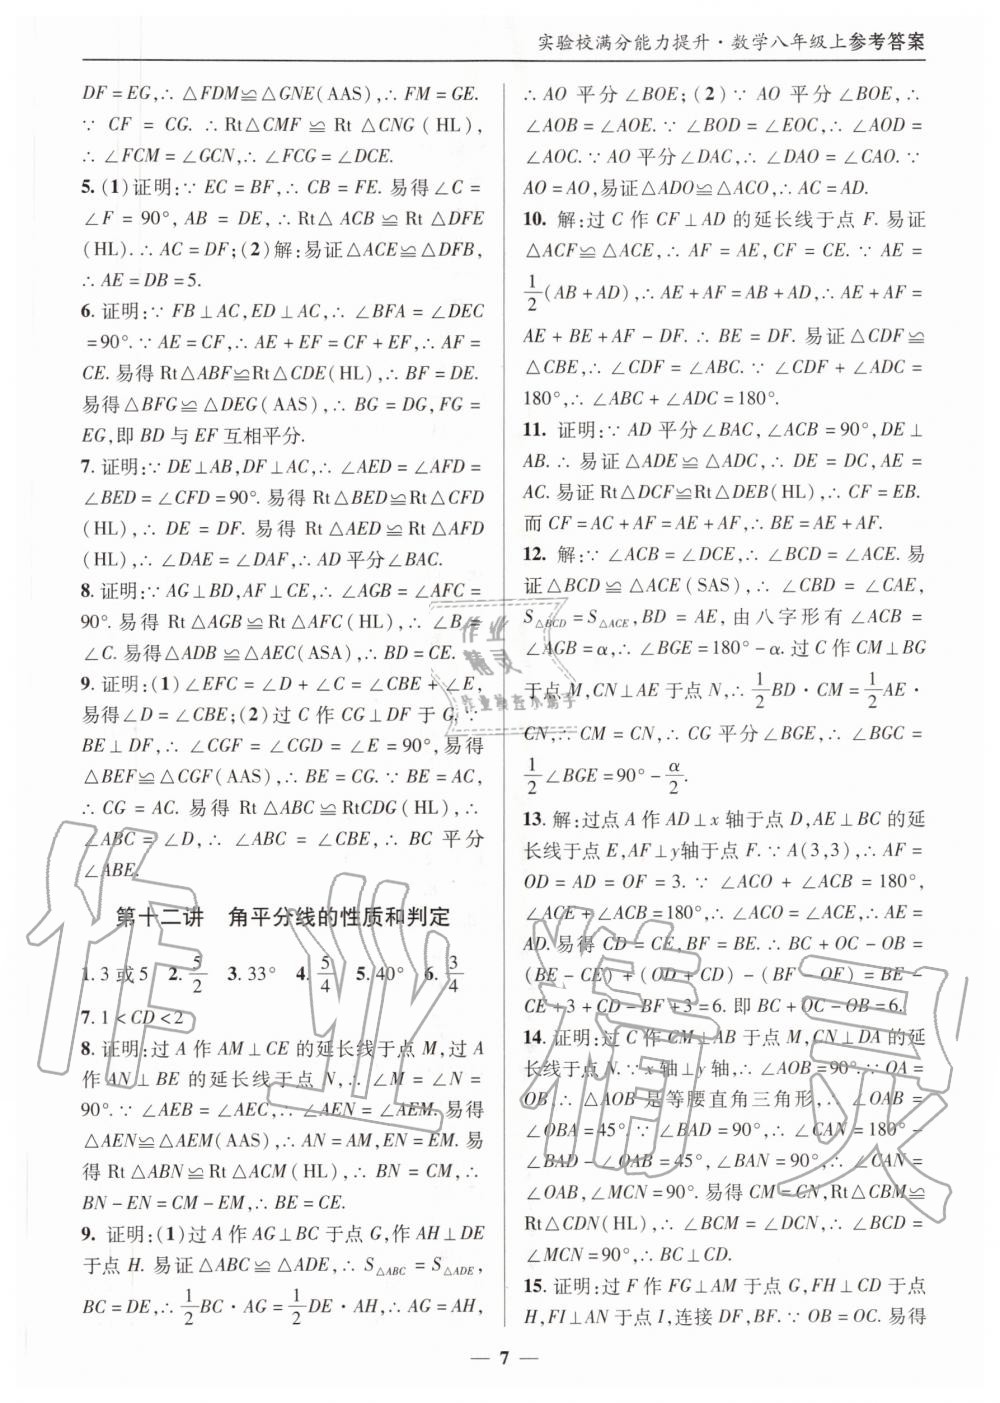 实验校满分能力提升·数学八年级上参考答案
DF=EG,∴△FDM≌△GNE(AAS),∴FM=GE.
∵ CF = CG. ∴Rt△CMF ≌ Rt △CNG (HL),
∴∠FCM=∠GCN,∴∠FCG=∠DCE.
5. (1)证明:∵EC=BF,∴CB=FE. 易得∠C=
∠F=90°,AB=DE,∴Rt△ACB≌Rt△DFE
(HL).∴AC=DF;(2)解:易证△ACE≌△DFB,
∴AE=DB=5.
6. 证明:∵FB⊥AC,ED⊥AC,∴∠BFA=∠DEC
=90°.∵AE=CF,∴AE+EF=CF+EF,∴AF=
CE. 易得Rt△ABF≌Rt△CDE(HL),∴BF=DE.
易得△BFG≌△DEG(AAS),∴BG=DG,FG=
EG,即BD与EF互相平分.
7. 证明:∵DE⊥AB,DF⊥AC,∴∠AED=∠AFD=
∠BED=∠CFD=90°. 易得Rt△BED≌Rt△CFD
(HL),∴DE=DF. 易得Rt△AED≌Rt△AFD
(HL),∴∠DAE=∠DAF,∴AD平分∠BAC.
8. 证明:∵AG⊥BD,AF⊥CE,∴∠AGB=∠AFC=
90°. 易得Rt△AGB≌Rt△AFC(HL),∴∠B=
∠C. 易得△ADB≌△AEC(ASA),∴BD=CE.
9. 证明:(1)∠EFC=∠D+∠C=∠CBE+∠E,
易得∠D=∠CBE;(2)过C作CG⊥DF于G,∵
BE⊥DF,∴∠CGF=∠CGD=∠E=90°,易得
△BEF≌△CGF(AAS),∴BE=CG.∵BE=AC,
∴CG=AC. 易得Rt△ABC≌RtCDG(HL),∴
∠ABC=∠D,∴∠ABC=∠CBE,∴BC平分
∠ABE.
第十二讲 角平分线的性质和判定
1. 3或5 2. 5/2 3. 33° 4. 5/4 5. 40° 6. 3/4
7. 1<CD<2
8. 证明:过A作AM⊥CE的延长线于点M,过A
作AN⊥BE的延长线于点N,∴∠M=∠N=
90°.∵∠AEB=∠AEC,∴∠AEN=∠AEM. 易得
△AEN≌△AEM(AAS),∴AN=AM,EN=EM. 易
得Rt△ABN≌Rt△ACM(HL),∴BN=CM,∴
BN-EN=CM-EM,∴BE=CE.
9. 证明:(1)过A作AG⊥BC于点G,作AH⊥DE
于点H. 易证△ABC≌△ADE,∴S△ABC=S△ADE,
BC=DE,∴1/2BC·AG=1/2DE·AH,∴AG=AH,
∴AO平分∠BOE;(2)∵AO平分∠BOE,∴
∠AOB=∠AOE.∵∠BOD=∠EOC,∴∠AOD=
∠AOC.∵AO平分∠DAC,∴∠DAO=∠CAO.∵
AO=AO,易证△ADO≌△ACO,∴AC=AD.
10. 解:过C作CF⊥AD的延长线于点F. 易证
△ACF≌△ACE,∴AF=AE,CF=CE.∵AE=
1/2(AB+AD),∴AE+AF=AB+AD,∴AE+AF=
AE+BE+AF-DF.∴BE=DF. 易证△CDF≌
△CBE,∴∠CDF=∠ABC.∵∠CDF+∠ADC=
180°,∴∠ABC+∠ADC=180°.
11. 证明:∵AD平分∠BAC,∠ACB=90°,DE⊥
AB.∴易证△ADE≌△ADC,∴DE=DC,AE=
AC. 易证Rt△DCF≌Rt△DEB(HL),∴CF=EB.
而CF=AC+AF=AE+AF,∴BE=AE+AF.
12. 解:∵∠ACB=∠DCE,∴∠BCD=∠ACE. 易
证△BCD≌△ACE(SAS),∴∠CBD=∠CAE,
S△BCD=S△ACE,BD=AE,由八字形有∠ACB=
∠AGB=α,∴∠BGE=180°-α. 过C作CM⊥BG
于点M,CN⊥AE于点N,∴1/2BD·CM=1/2AE·
CN,∴CM=CN,∴CG平分∠BGE,∴∠BGC=
1/2∠BGE=90°-α/2.
13. 解:过点A作AD⊥x轴于点D,AE⊥BC的延
长线于点E,AF⊥y轴于点F.∵A(3,3),∴AF=
OD=AD=OF=3.∵∠ACO+∠ACB=180°,
∠ACE+∠ACB=180°,∴∠ACO=∠ACE,∴AE=
AD. 易得CD=CE,BF=BE.∴BC+OC-OB=
(BE-CE)+(OD+CD)-(BF-OF)=BE-
CE+3+CD-BF+3=6. 即BC+OC-OB=6.
14. 证明:过C作CM⊥AB于点M,CN⊥DA的延
长线于点N.∵x轴⊥y轴,∴∠AOB=90°.∵OA=
OB,∴△AOB是等腰直角三角形,∴∠OAB=
∠OBA=45°.∵∠BAD=90°,∴∠CAN=180°-
∠BAD-∠OAB=45°,∠BAN=90°,∴∠CAN=
∠OAB,∠MCN=90°. 易得CM=CN,Rt△CBM≌
Rt△CDN(HL),∴∠BCM=∠DCN,∴∠BCD=
∠MCN=90°,∴BC⊥CD.
15. 证明:过F作FG⊥AM于点G,FH⊥CD于点
H,FI⊥AN于点I,连接DF,BF.∵OB=OC. 易得
— 7 —
作业精灵
作业
精灵
作业检查小帮手